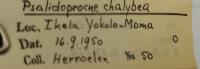 Psalidoprocne chalybea
Loc. Ikela: Yokolo-Moma
Dat. 16.9.1950 O
Coll. Herroelen No 50